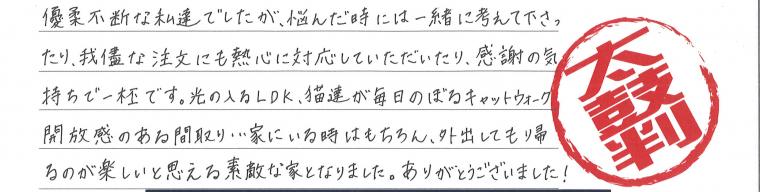 優柔不断な私達でしたが、悩んだ時には一緒に考えて下さっ
たり、我儘な注文にも熱心に対応していただいたり、感謝の気
持ちで一杯です。光の入るLDK、猫達が毎日のぼるキャットウォーク
開放感のある間取り…家にいる時はもちろん、外出しても帰
るのが楽しいと思える素敵な家となりました。ありがとうございました!
太鼓判